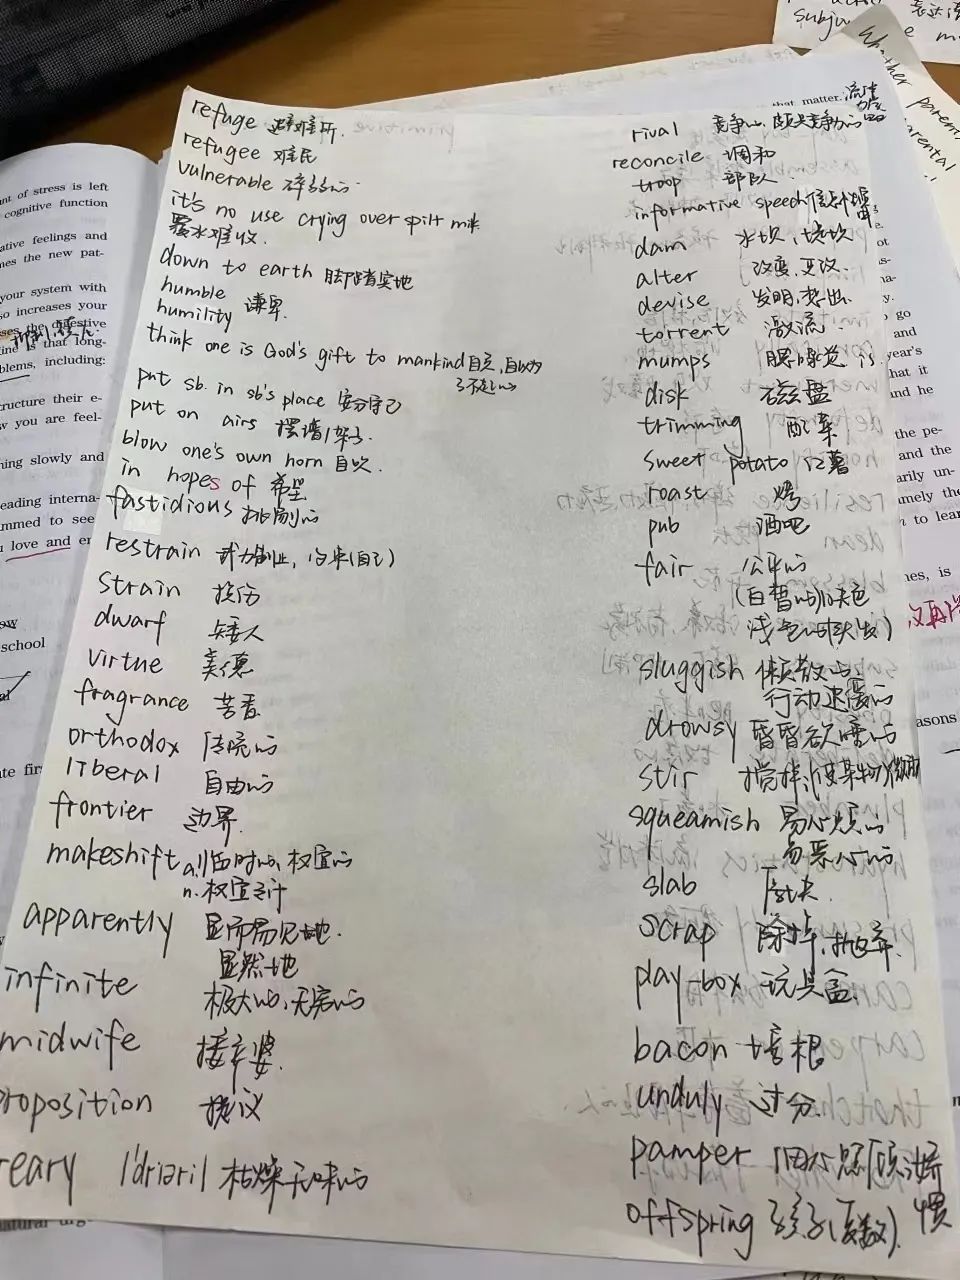 refuge 避难所.
refugee 难民
vulnerable 脆弱的.
it's no use crying over spilt milk
覆水难收.
down to earth 脚踏实地
humble
humility 谦卑.
think one is God's gift to mankind 自负,自以为
了不起的
put sb. in sb's place 安分守己
put on airs 摆谱/架子.
blow one's own horn 自吹.
in hopes of 希望
fastidious 挑剔的
restrain 武力制止, 约束(自己)
strain 拉伤
dwarf 矮人
virtue 美德
fragrance 芳香
orthodox 传统的
liberal 自由的
frontier 边界.
makeshift a.临时的,权宜的
n.权宜之计
apparently 显而易见地.
显然地
infinite 极大的,无穷的
midwife 接生婆.
roposition 提议
reary |'driəri| 枯燥无味的
rival 竞争的
reconcile 调和
troop 部队
informative speech
dam 水坝,堤坝
alter 改变,更改.
devise 发明,想出.
torrent 激流
mumps 腮腺炎
disk 磁盘
trimming 配菜
sweet potato 红薯
roast 烤
pub 酒吧
fair 公平的
(白皙的)肤色
浅色的(头发)
sluggish 懒散的
行动迟缓的
drowsy 昏昏欲睡的
stir 搅拌
squeamish 易心烦的
易恶心的
slab 厚块.
scrap 除掉,抛弃.
play-box 玩具盒.
bacon 培根
unduly 过分.
pamper 娇惯
offspring 孩子(复数).
that matter.
nt of stress is left
cognitive function
ative feelings and
nes the new pat-
your system with
so increases your
ses the digestive
tine is that long-
blems, including:
ructure their e-
w you are feel-
ning slowly and
eading interna-
mmed to see
love and
school
ate fir
go
and
year's
hat it
nd he
the pe-
and the
arily un-
mely the
to lear
nes, is
asons
Whether parents
arental